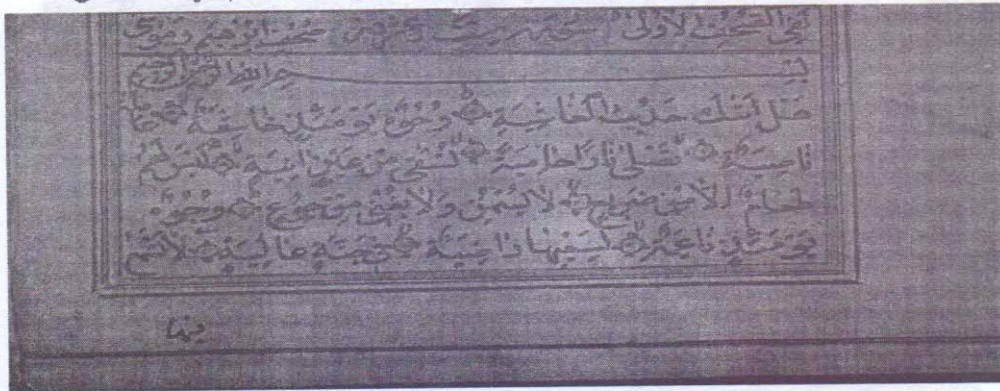 لفي الصحف الأولى صحف ابرهيم وموسى
بسم الله الرحمن الرحيم
هل أتىك حديث الغاشية وجوه يومئذ خاشعة عاملة
ناصبة تصلى نارا حامية تسقى من عين انية ليس لهم
طعام الا من ضريع لا يسمن ولا يغني من جوع وجوه
يومئذ ناعمة لسعيها راضية في جنة عالية لا تسمع
فيها